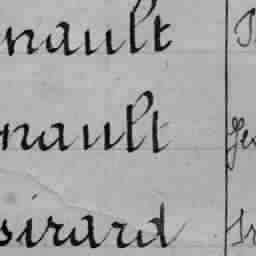 nault
nault
sirard